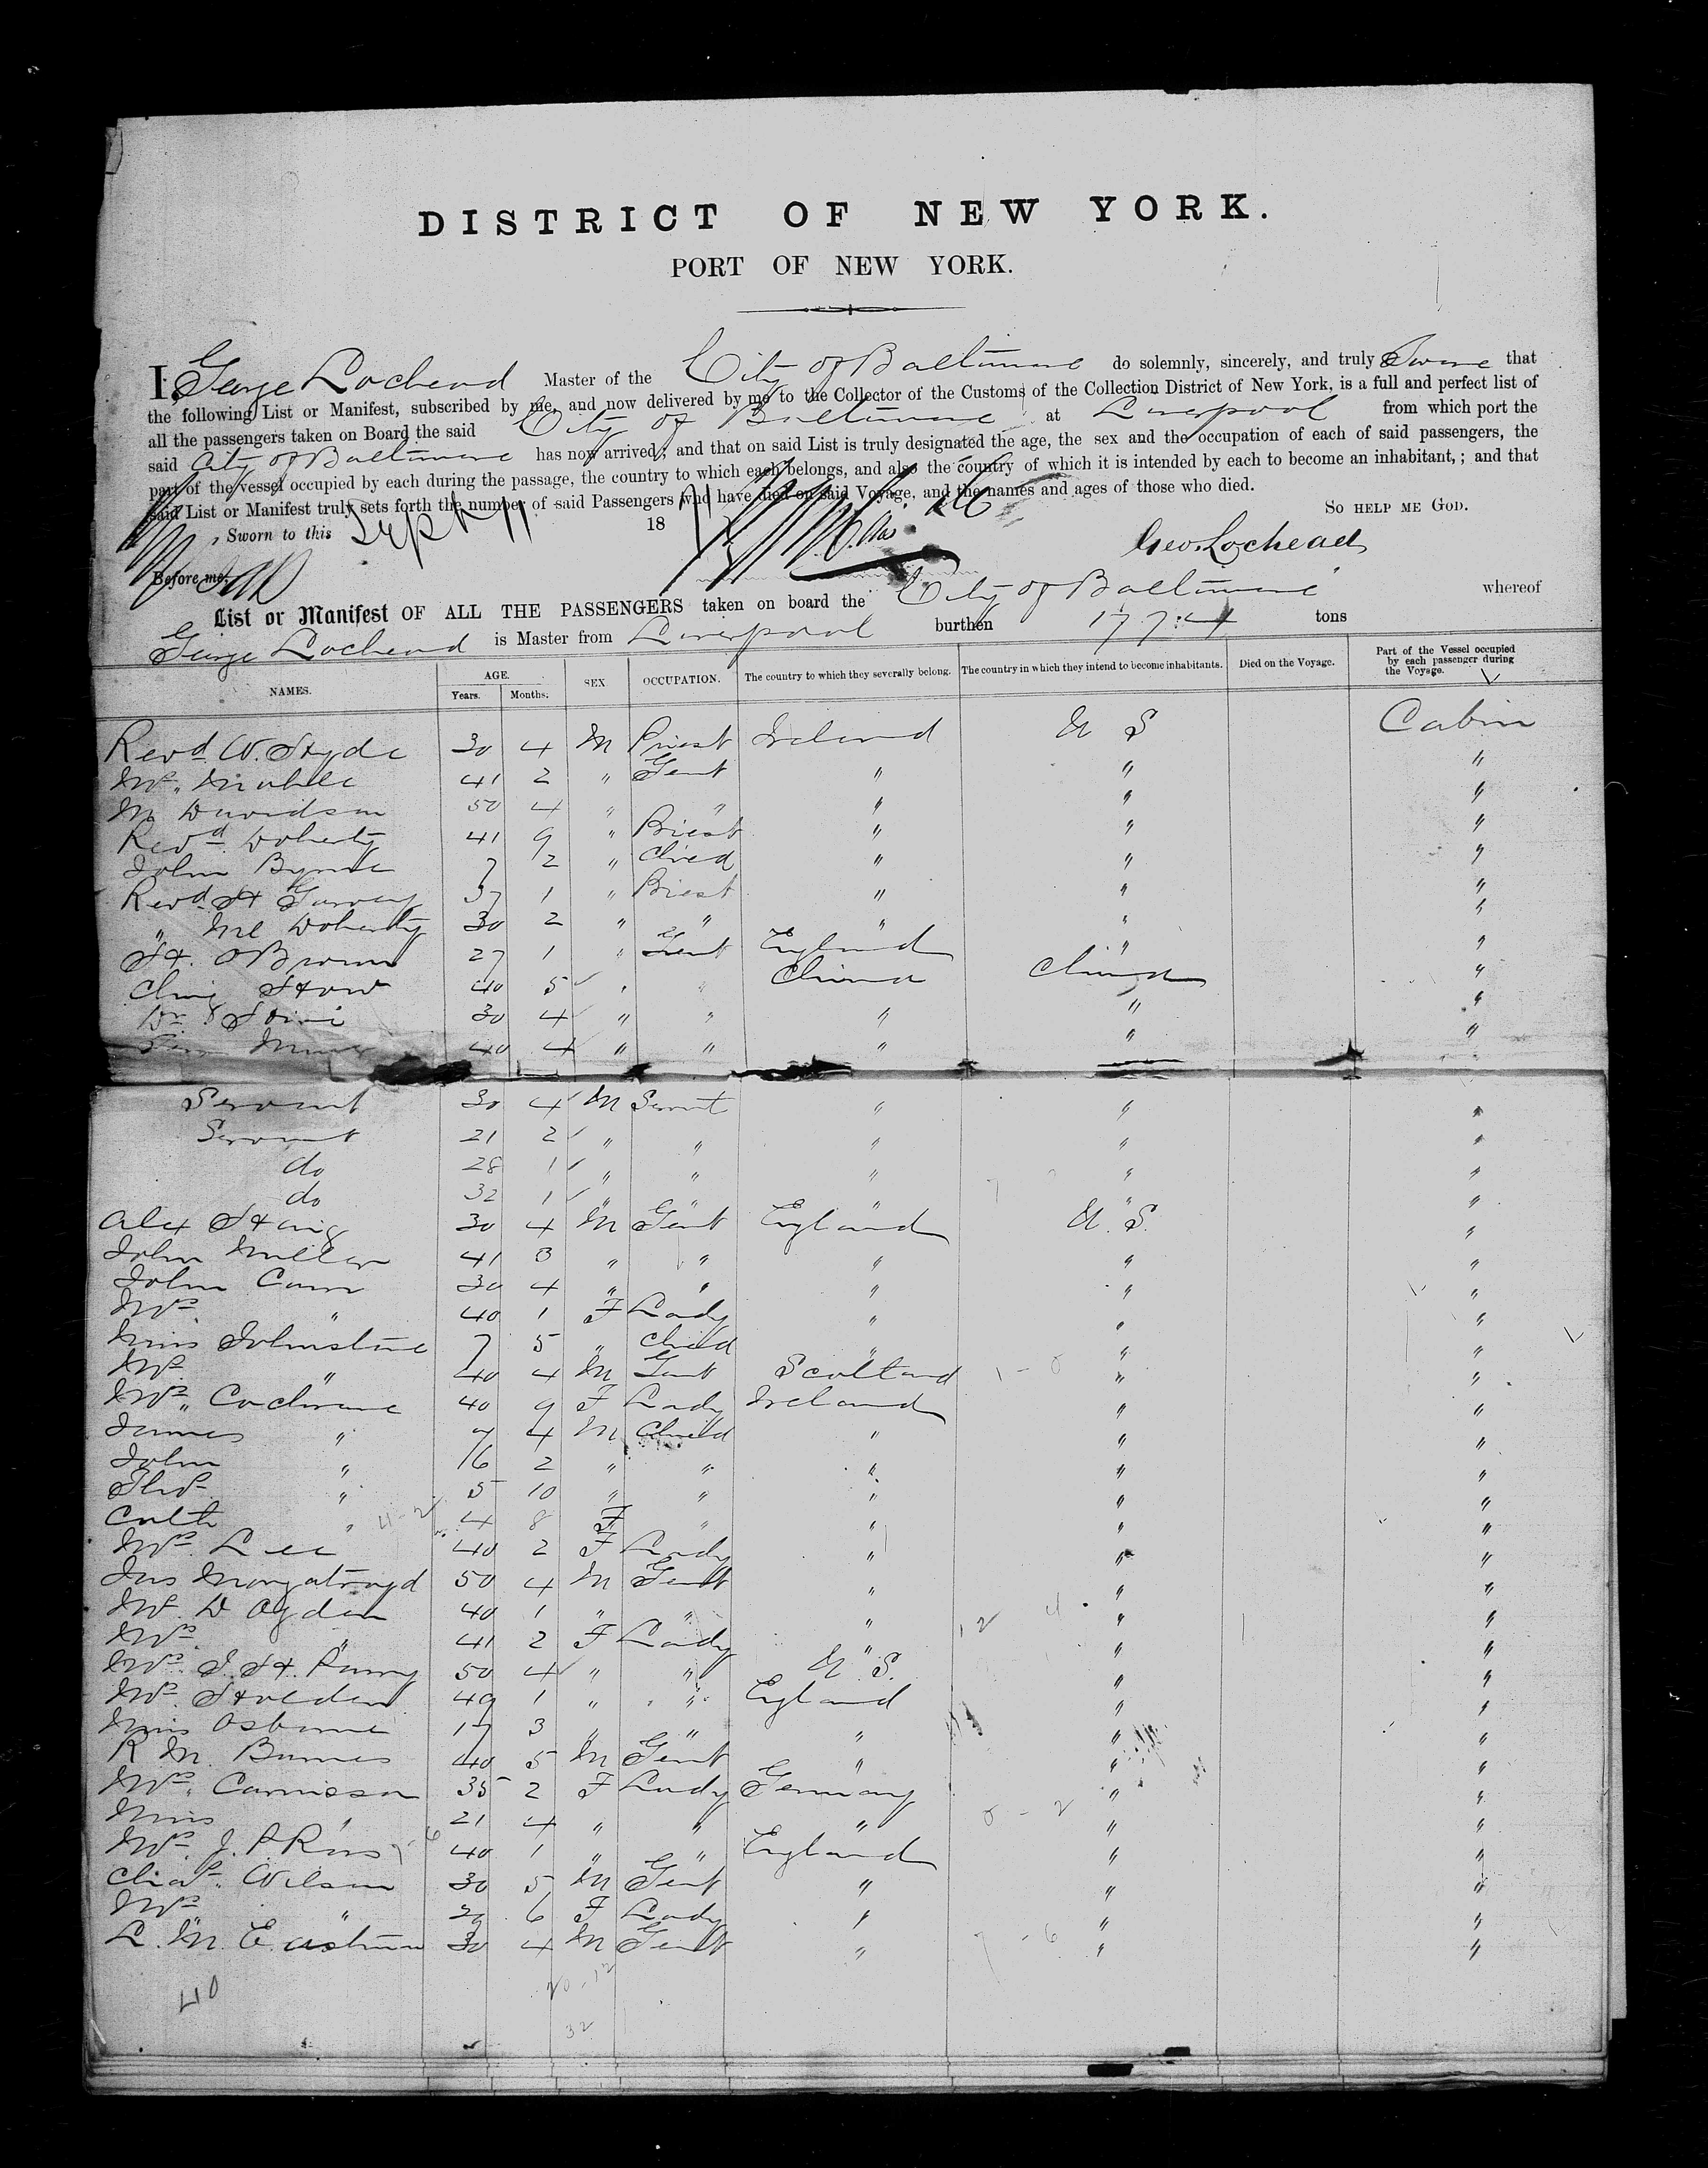 DISTRICT OF NEW YORK.
PORT OF NEW YORK.
I, George Lochead Master of the City of Baltimore do solemnly, sincerely, and truly Swear that
the following List or Manifest, subscribed by me, and now delivered by me to the Collector of the Customs of the Collection District of New York, is a full and perfect list of
all the passengers taken on Board the said City of Baltimore at Liverpool from which port the
said City of Baltimore has now arrived; and that on said List is truly designated the age, the sex and the occupation of each of said passengers, the
part of the vessel occupied by each during the passage, the country to which each belongs, and also the country of which it is intended by each to become an inhabitant,; and that
said List or Manifest truly sets forth the number of said Passengers who have died on said Voyage, and the names and ages of those who died.
So help me God.
Sworn to this Sept 11 18
Geo. Lochead
Before me,
List or Manifest OF ALL THE PASSENGERS taken on board the City of Baltimore whereof
George Lochead is Master from Liverpool burthen 1774 tons
NAMES. AGE. Years. Months. SEX. OCCUPATION. The country to which they severally belong. The country in which they intend to become inhabitants. Died on the Voyage. Part of the Vessel occupied by each passenger during the Voyage.
Revd W. Hyde 30 4 M Priest Ireland U S Cabin
41 2 " Gent " " "
M Davidson 50 4 " " " " "
Revd Doherty 41 9 " Priest " " "
John Byrne 7 2 " Child " " "
Revd H Garvey 37 1 " Priest " " "
" Mc Doherty 30 2 " " " " "
H. O Brown 27 1 " Gent England " "
40 5 " " China China "
30 4 " " " " "
40 4 " " " " "
Servant 30 4 M Servt " " "
Servant 21 2 " " " " "
do 28 1 " " " " "
do 32 1 " " " " "
Alex Haig 30 4 M Gent England U.S. "
John Miller 41 3 " " " " "
John Carr 30 4 " " " " "
Mrs " 40 1 F Lady " " "
Miss Johnstone 7 5 " Child " " "
Mr " 40 4 M Gent Scotland " "
Mrs Cochrane 40 9 F Lady Ireland " "
James " 7 4 M Child " " "
John " 16 2 " " " " "
Thos " 5 10 " " " " "
Cath " 4 8 F " " " "
Mrs Lee 40 2 F Lady " " "
Jas Murgatroyd 50 4 M Gent " " "
Mr D Ogden 40 1 " " " " "
Mrs " 41 2 F Lady " " "
Mrs J. H. Parry 50 4 " " U.S. " "
Mrs Holden 49 1 " " England " "
Miss Osborne 17 3 " " " " "
R M Barnes 40 5 M Gent " " "
Mrs Carnisson 35 2 F Lady Germany " "
Miss " 21 4 " " " " "
Mrs J. P. Ross 40 1 " " England " "
Chas Wilson 30 5 M Gent " " "
Mrs " 6 F Lady " " "
L. M. Eastman 30 4 M Gent " " "
40
32